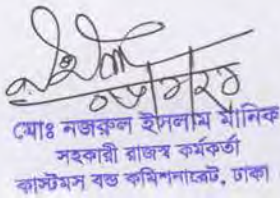 মোঃ নজরুল ইসলাম মানিক
সহকারী রাজস্ব কর্মকর্তা
কাস্টমস বন্ড কমিশনারেট, ঢাকা